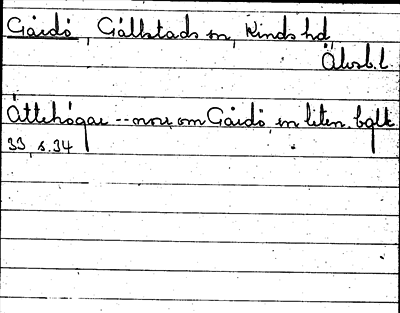 Gårdö, Gällstads sn, Kinds hd
Älvsb. l.
Ättehögar -- norr om Gårdö, en liten. balk
33, s. 34